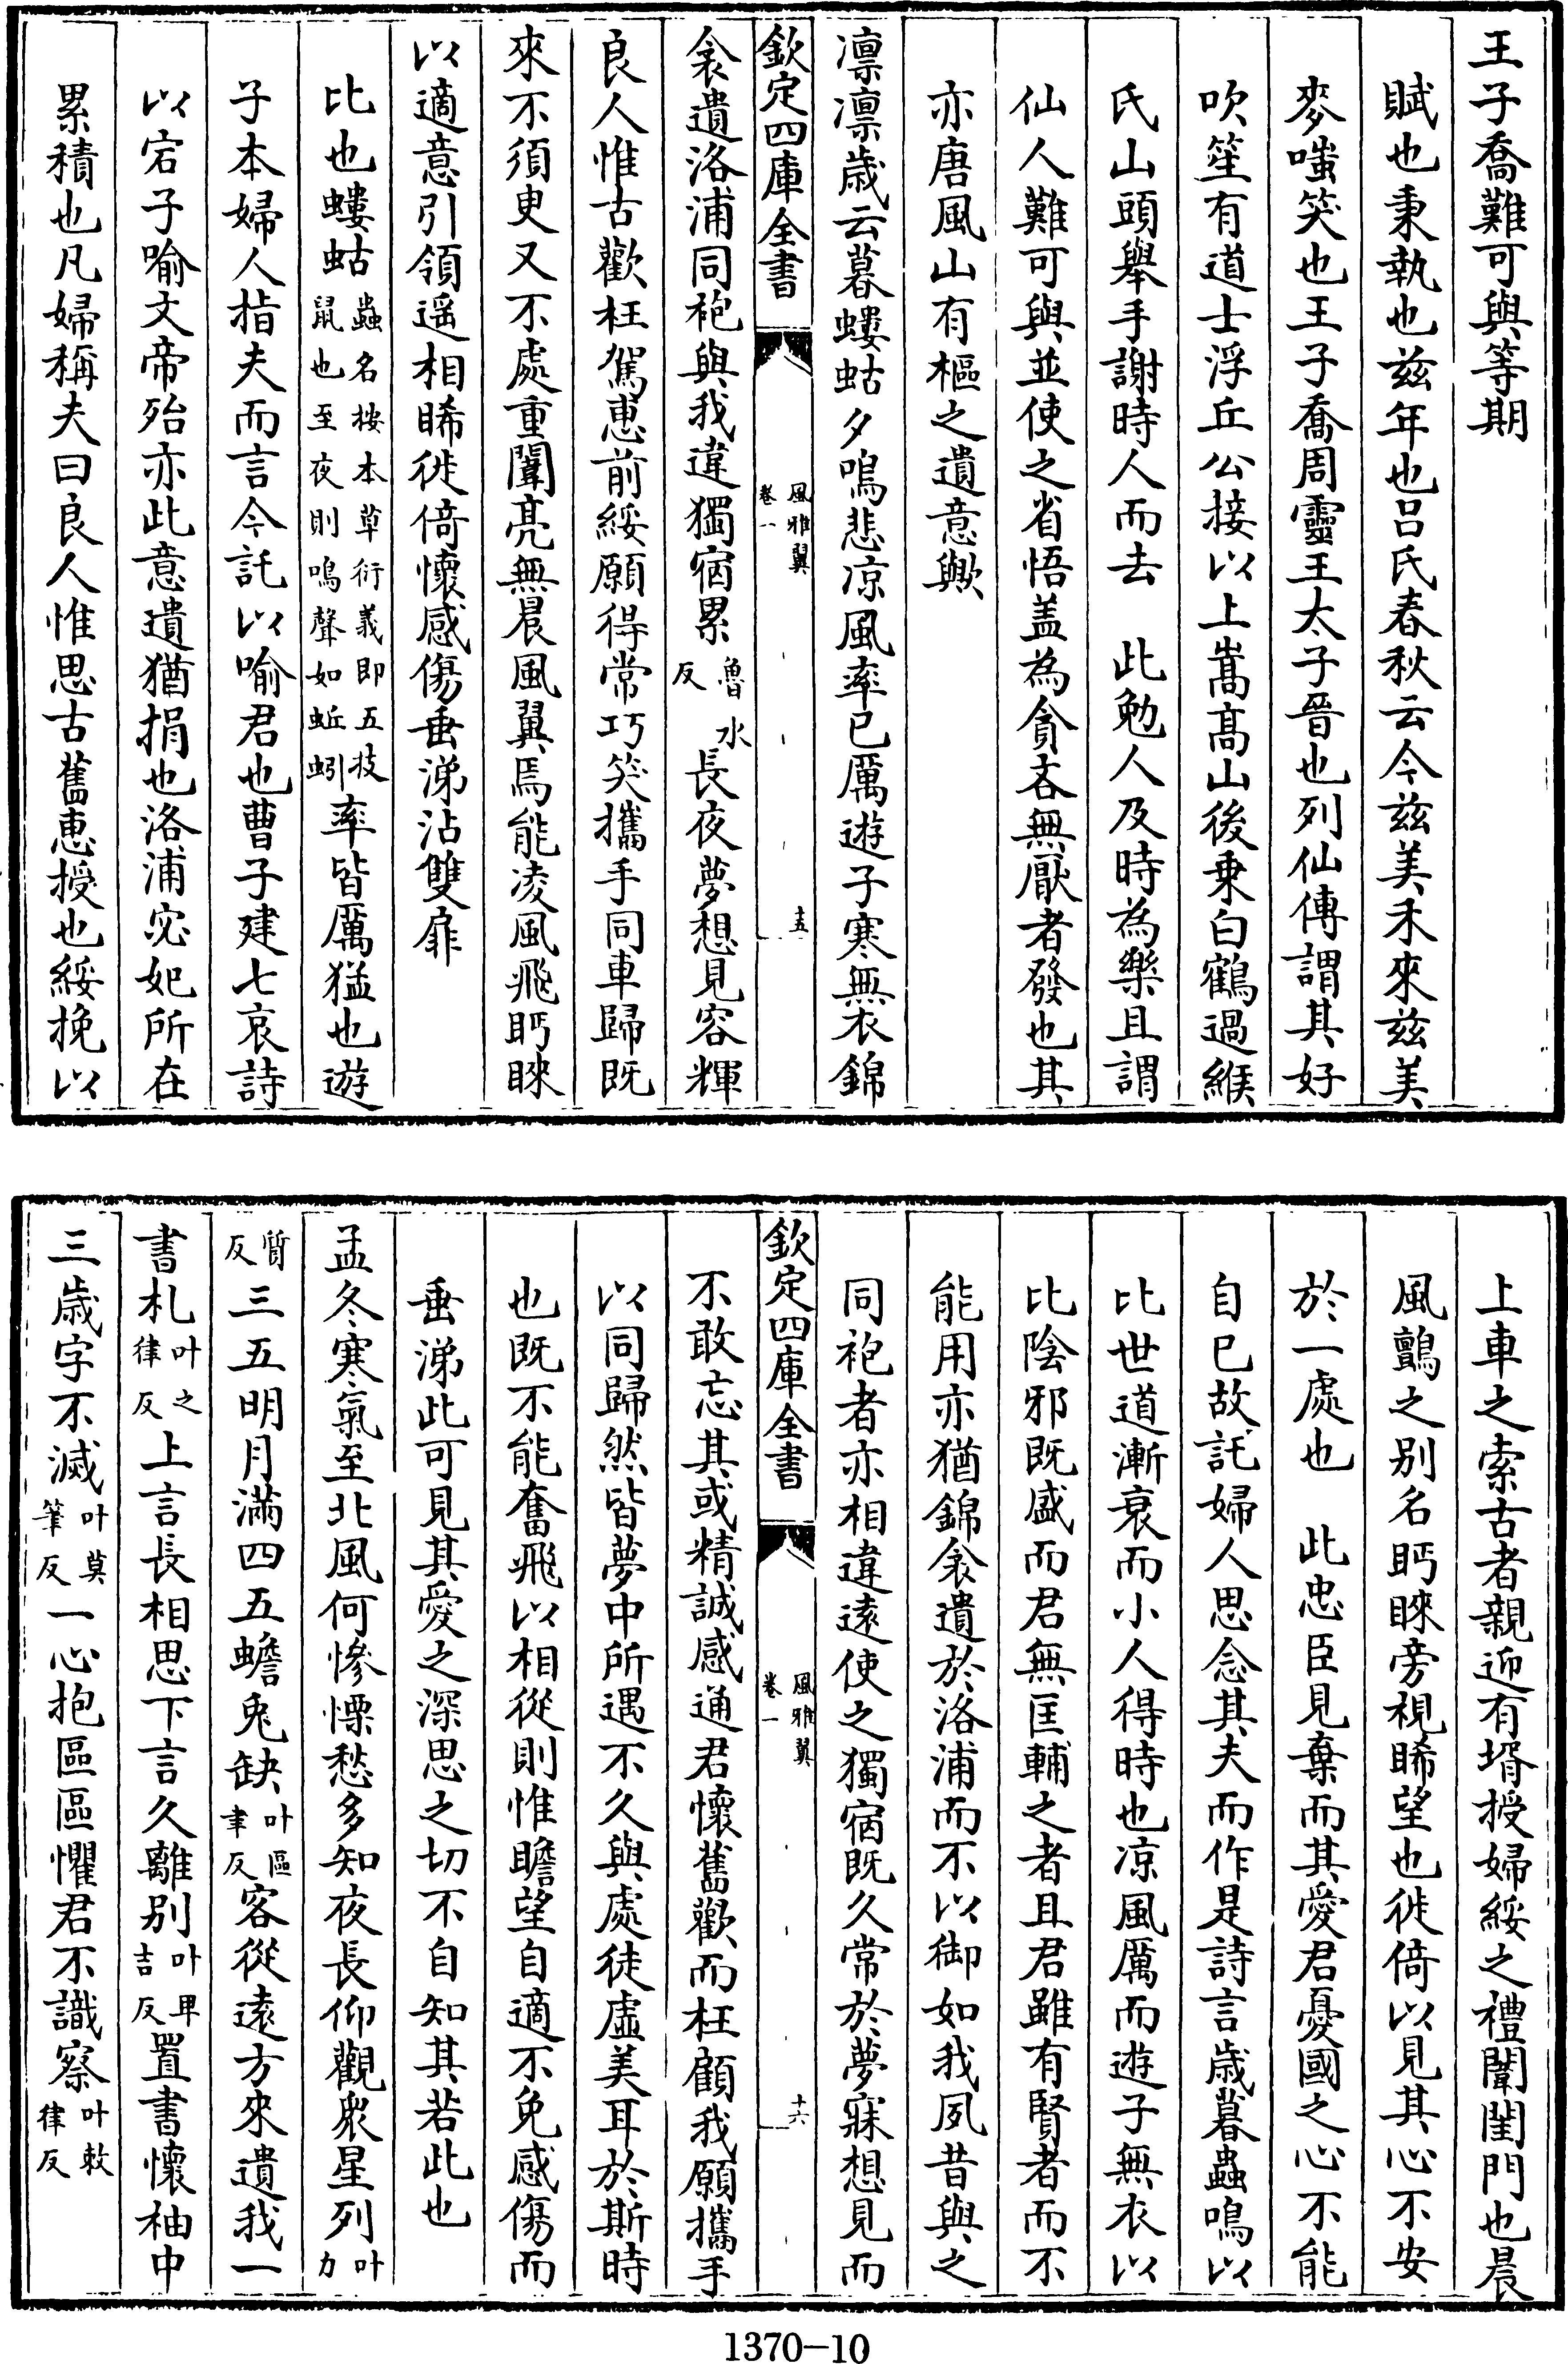 王子喬難可與等期
賦也秉執也茲年也呂氏春秋云今茲美禾來茲美
麥嗤笑也王子喬周靈王太子晉也列仙傳謂其好
吹笙有道士浮丘公接以上嵩髙山後乗白鶴過緱
氏山頭舉手謝時人而去　此勉人及時為樂且謂
仙人難可與並使之省悟盖為貪吝無厭者發也其
亦唐風山有樞之遺意歟
凛凛歳云暮螻蛄夕鳴悲凉風率已厲遊子寒無衣錦
欽定四庫全書
風雅翼
卷一
十五
衾遺洛浦同袍與我違獨宿累魯水反長夜夢想見容輝
良人惟古歡枉駕恵前綏願得常巧笑攜手同車歸既
來不須臾又不處重闈亮無晨風翼焉能凌風飛眄睞
以適意引領遥相睎徙倚懷感傷垂涕沾雙扉
比也螻蛄蟲名按本草衍義即五技鼠也至夜則鳴聲如蚯蚓率皆厲猛也遊
子本婦人指夫而言今託以喻君也曹子建七哀詩
以宕子喻文帝殆亦此意遺猶捐也洛浦宓妃所在
累積也凡婦稱夫曰良人惟思古舊恵授也綏挽以
上車之索古者親迎有壻授婦綏之禮闈閨門也晨
風鸇之别名眄睞旁視睎望也徙倚以見其心不安
於一處也　此忠臣見棄而其愛君憂國之心不能
自已故託婦人思念其夫而作是詩言歳暮蟲鳴以
比世道漸衰而小人得時也凉風厲而遊子無衣以
比陰邪既盛而君無匡輔之者且君雖有賢者而不
能用亦猶錦衾遺於洛浦而不以御如我夙昔與之
同袍者亦相違逺使之獨宿既久常於夢寐想見而
欽定四庫全書
風雅翼
卷一
十六
不敢忘其或精誠感通君懷舊歡而枉顧我願攜手
以同歸然皆夢中所遇不久與處徒虚美耳於斯時
也既不能奮飛以相從則惟瞻望自適不免感傷而
垂涕此可見其愛之深思之切不自知其若此也
孟冬寒氣至北風何惨慄愁多知夜長仰觀衆星列叶力
質反三五明月滿四五蟾兔缺叶區聿反客從逺方來遺我一
書札叶之律反上言長相思下言久離别叶畢吉反置書懷袖中
三歳字不滅叶莫筆反一心抱區區懼君不識察叶敕律反
1370-10